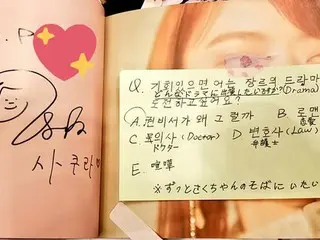 .P
사쿠라
Q. 기회있으면 어느 장르의 드라마(Drama)
도전하고싶어요?
A. 권비서가 왜 그럴까
B. 로맨
恋愛
C 목의사(Doctor)
ドクター
D 변호사(Law)
弁護士
E. 喧嘩
※ずっとさくちゃんのそばにいたい